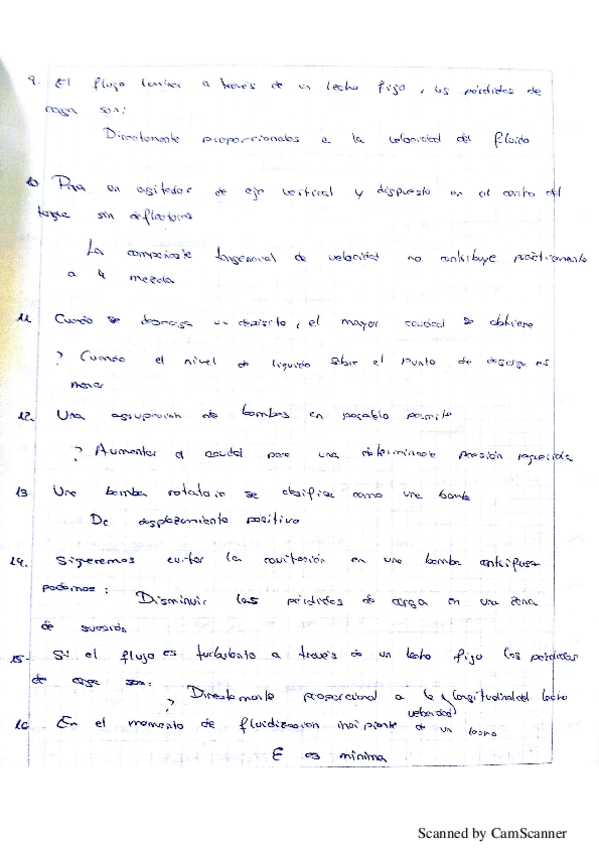 9. El flujo laminar a través de un lecho fijo, las pérdidas de
carga son:
Directamente proporcionales a la velocidad del fluido
10 Para un agitador de eje vertical y dispuesto en el centro del
tanque sin deflectores
La componente tangencial de velocidad no contribuye prácticamente
a la mezcla
11 Cuando se descarga un depósito, el mayor caudal se obtiene
? Cuando el nivel de líquido sobre el punto de descarga es
menor
12. Una agrupación de bombas en paralelo permite
? Aumentar el caudal para una determinada presión requerida
13 Una bomba rotatoria se clasifica como una bomba
De desplazamiento positivo
14. Si queremos evitar la cavitación en una bomba centrífuga
podemos: Disminuir las pérdidas de carga en una zona
de succión
15. Si el flujo es turbulento a través de un lecho fijo las pérdidas
de carga son:
? Directamente proporcional a la y longitud del lecho
velocidad
16 En el momento de fluidización incipiente de un lecho
E es mínima
Scanned by CamScanner